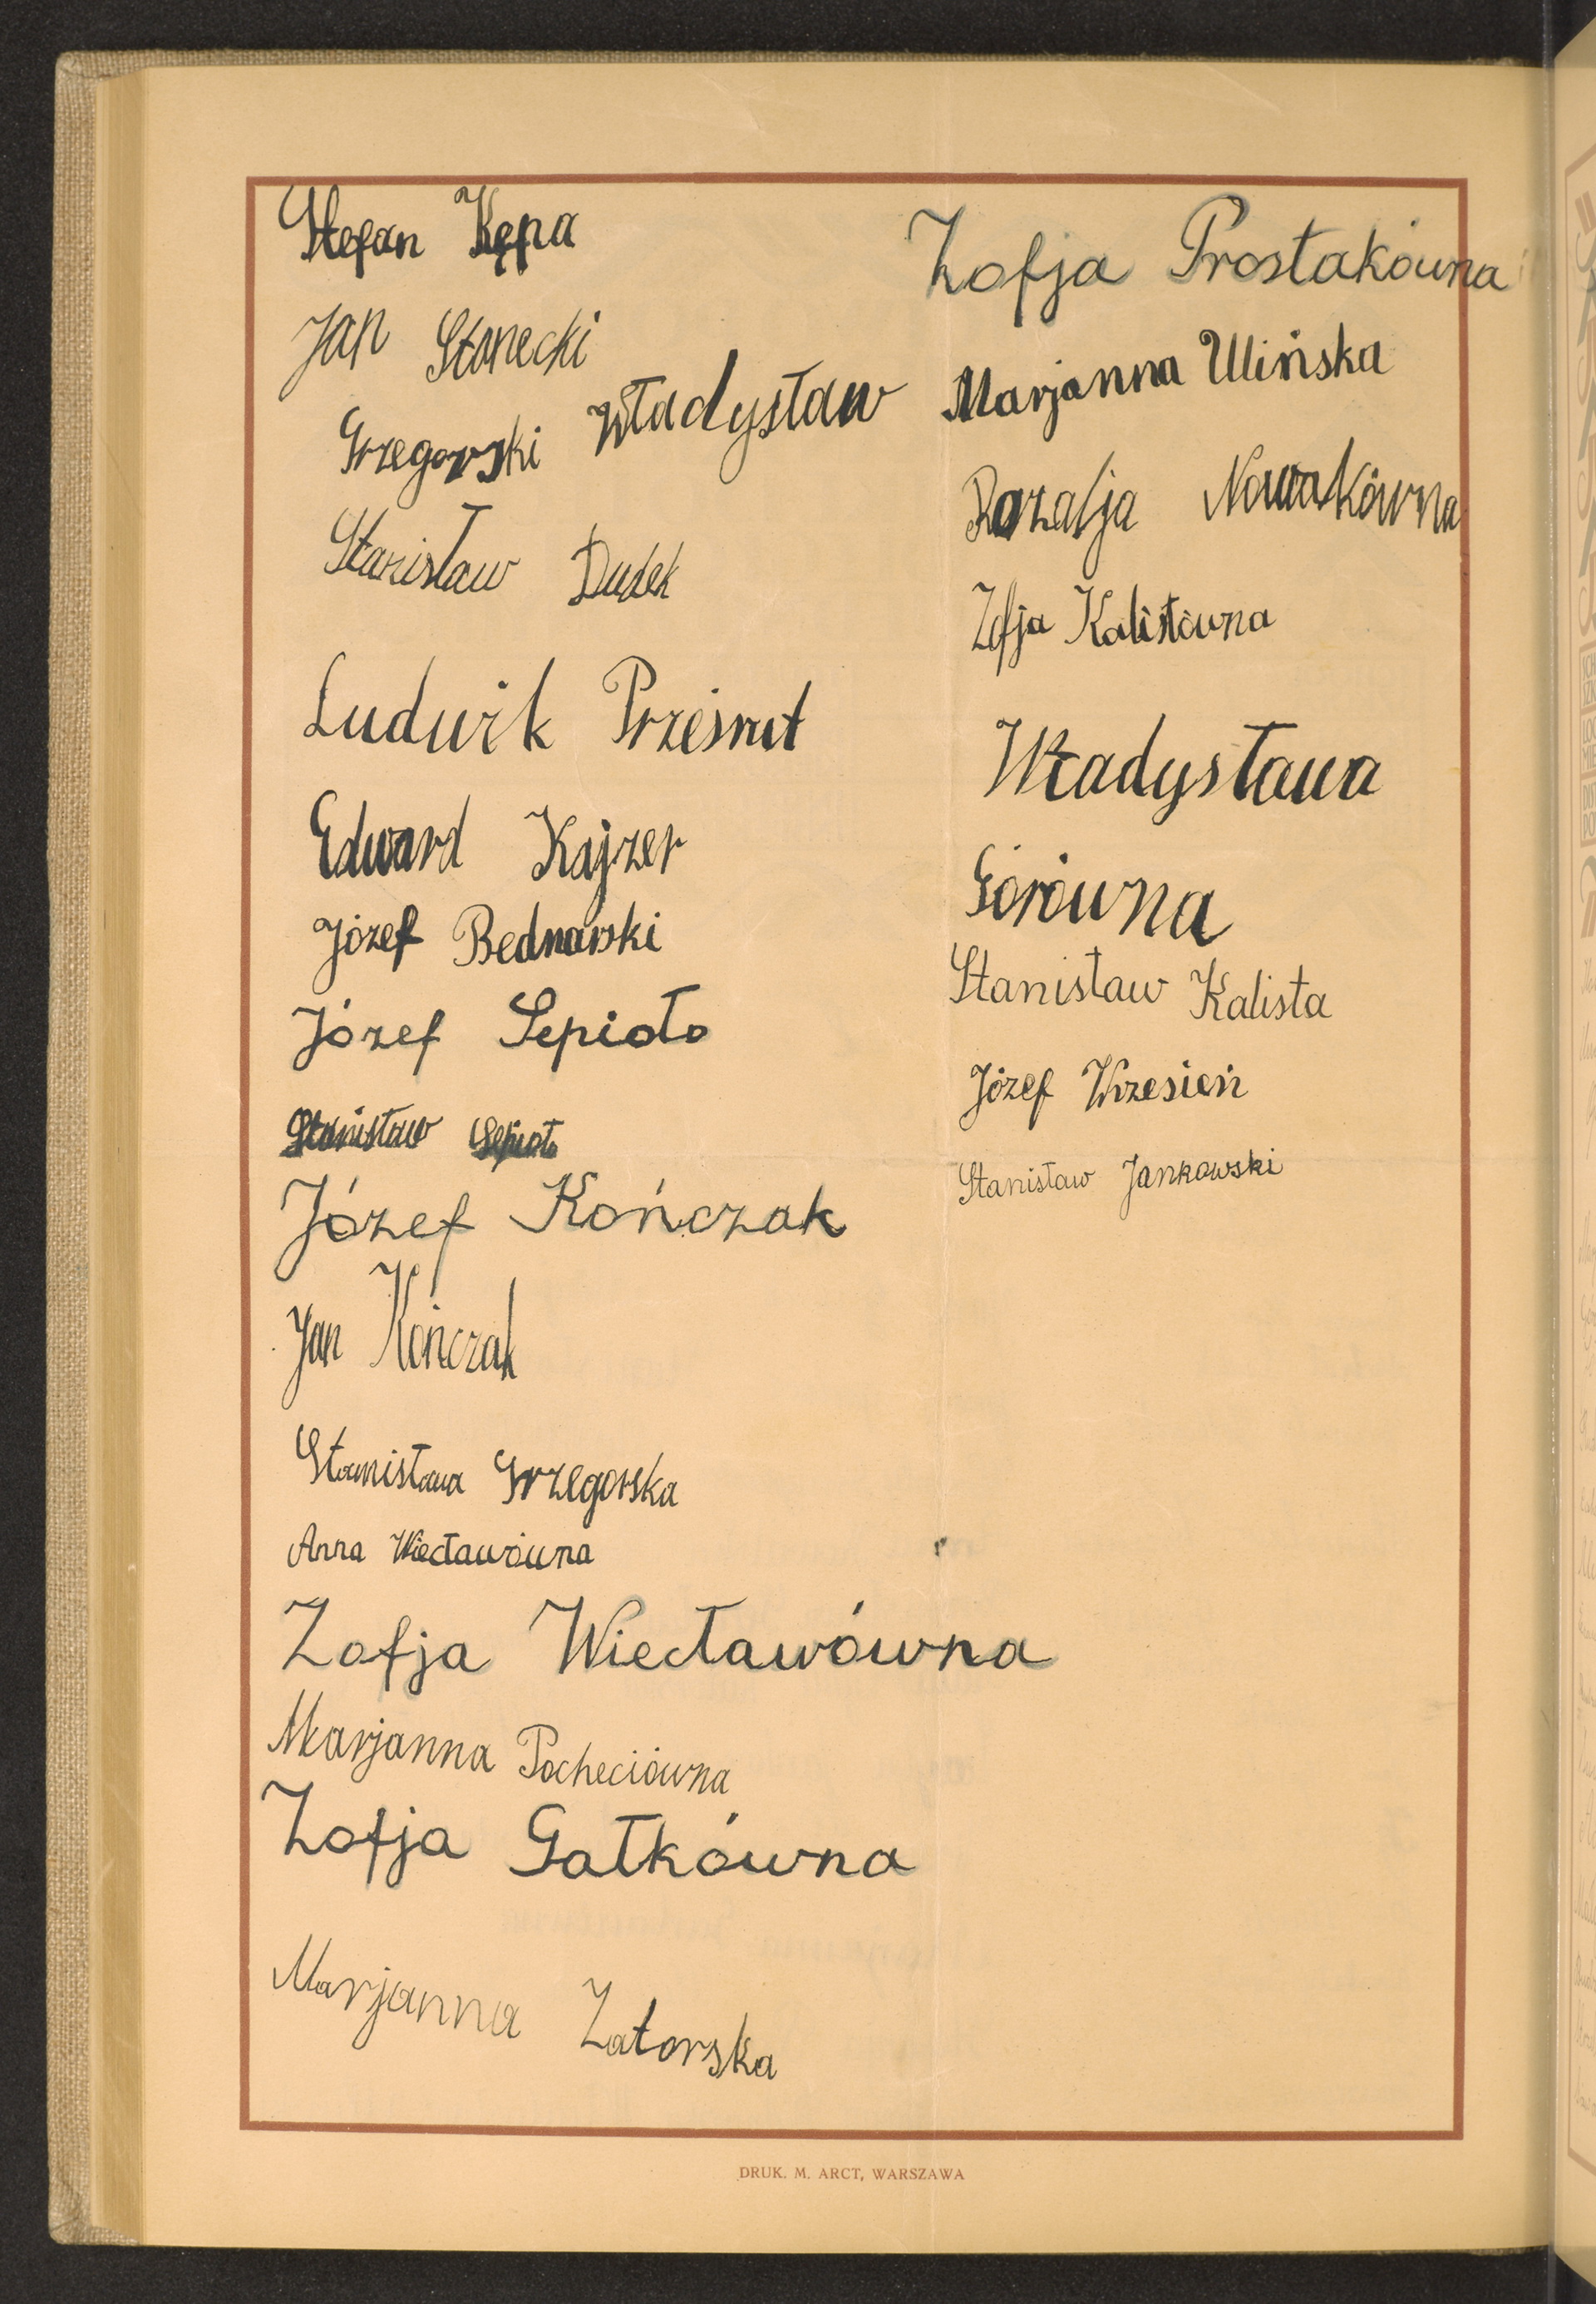 Stefan Kępa
Jan Stanecki
Grzegorski Władysław
Stanisław Dudek
Ludwik Prześnit
Edward Kajzer
Józef Bednarski
Józef Sepioło
Stanisław Sepioło
Józef Kończak
Jan Kończak
Stanisława Grzegorska
Anna Wiecławówna
Zofja Wiecławówna
Marjanna Pocheciówna
Zofja Gałkówna
Marjanna Zatorska
Zofja Prostakówna
Marjanna Ulińska
Rozalja Nowakówna
Zofja Kalistówna
Władysława
Górówna
Stanisław Kalista
Józef Wrzesień
Stanisław Jankowski
DRUK. M. ARCT, WARSZAWA